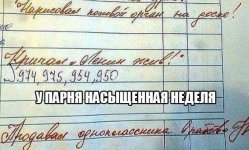 Нарисовал половой орган на доске!
Кричал "Ленин жив!"
974, 975, 954, 950
У ПАРНЯ НАСЫЩЕННАЯ НЕДЕЛЯ
Продавал одноклассника